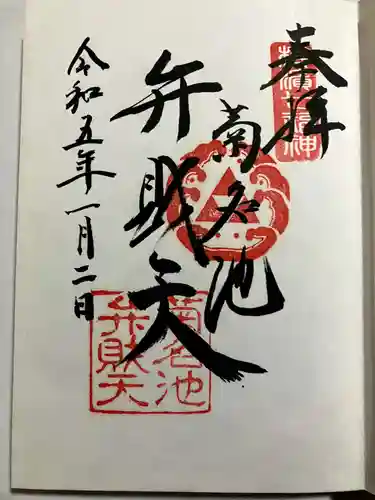 奉拝
横濱七福神
菊名池
弁財天
令和五年一月二日
菊名池
弁財天